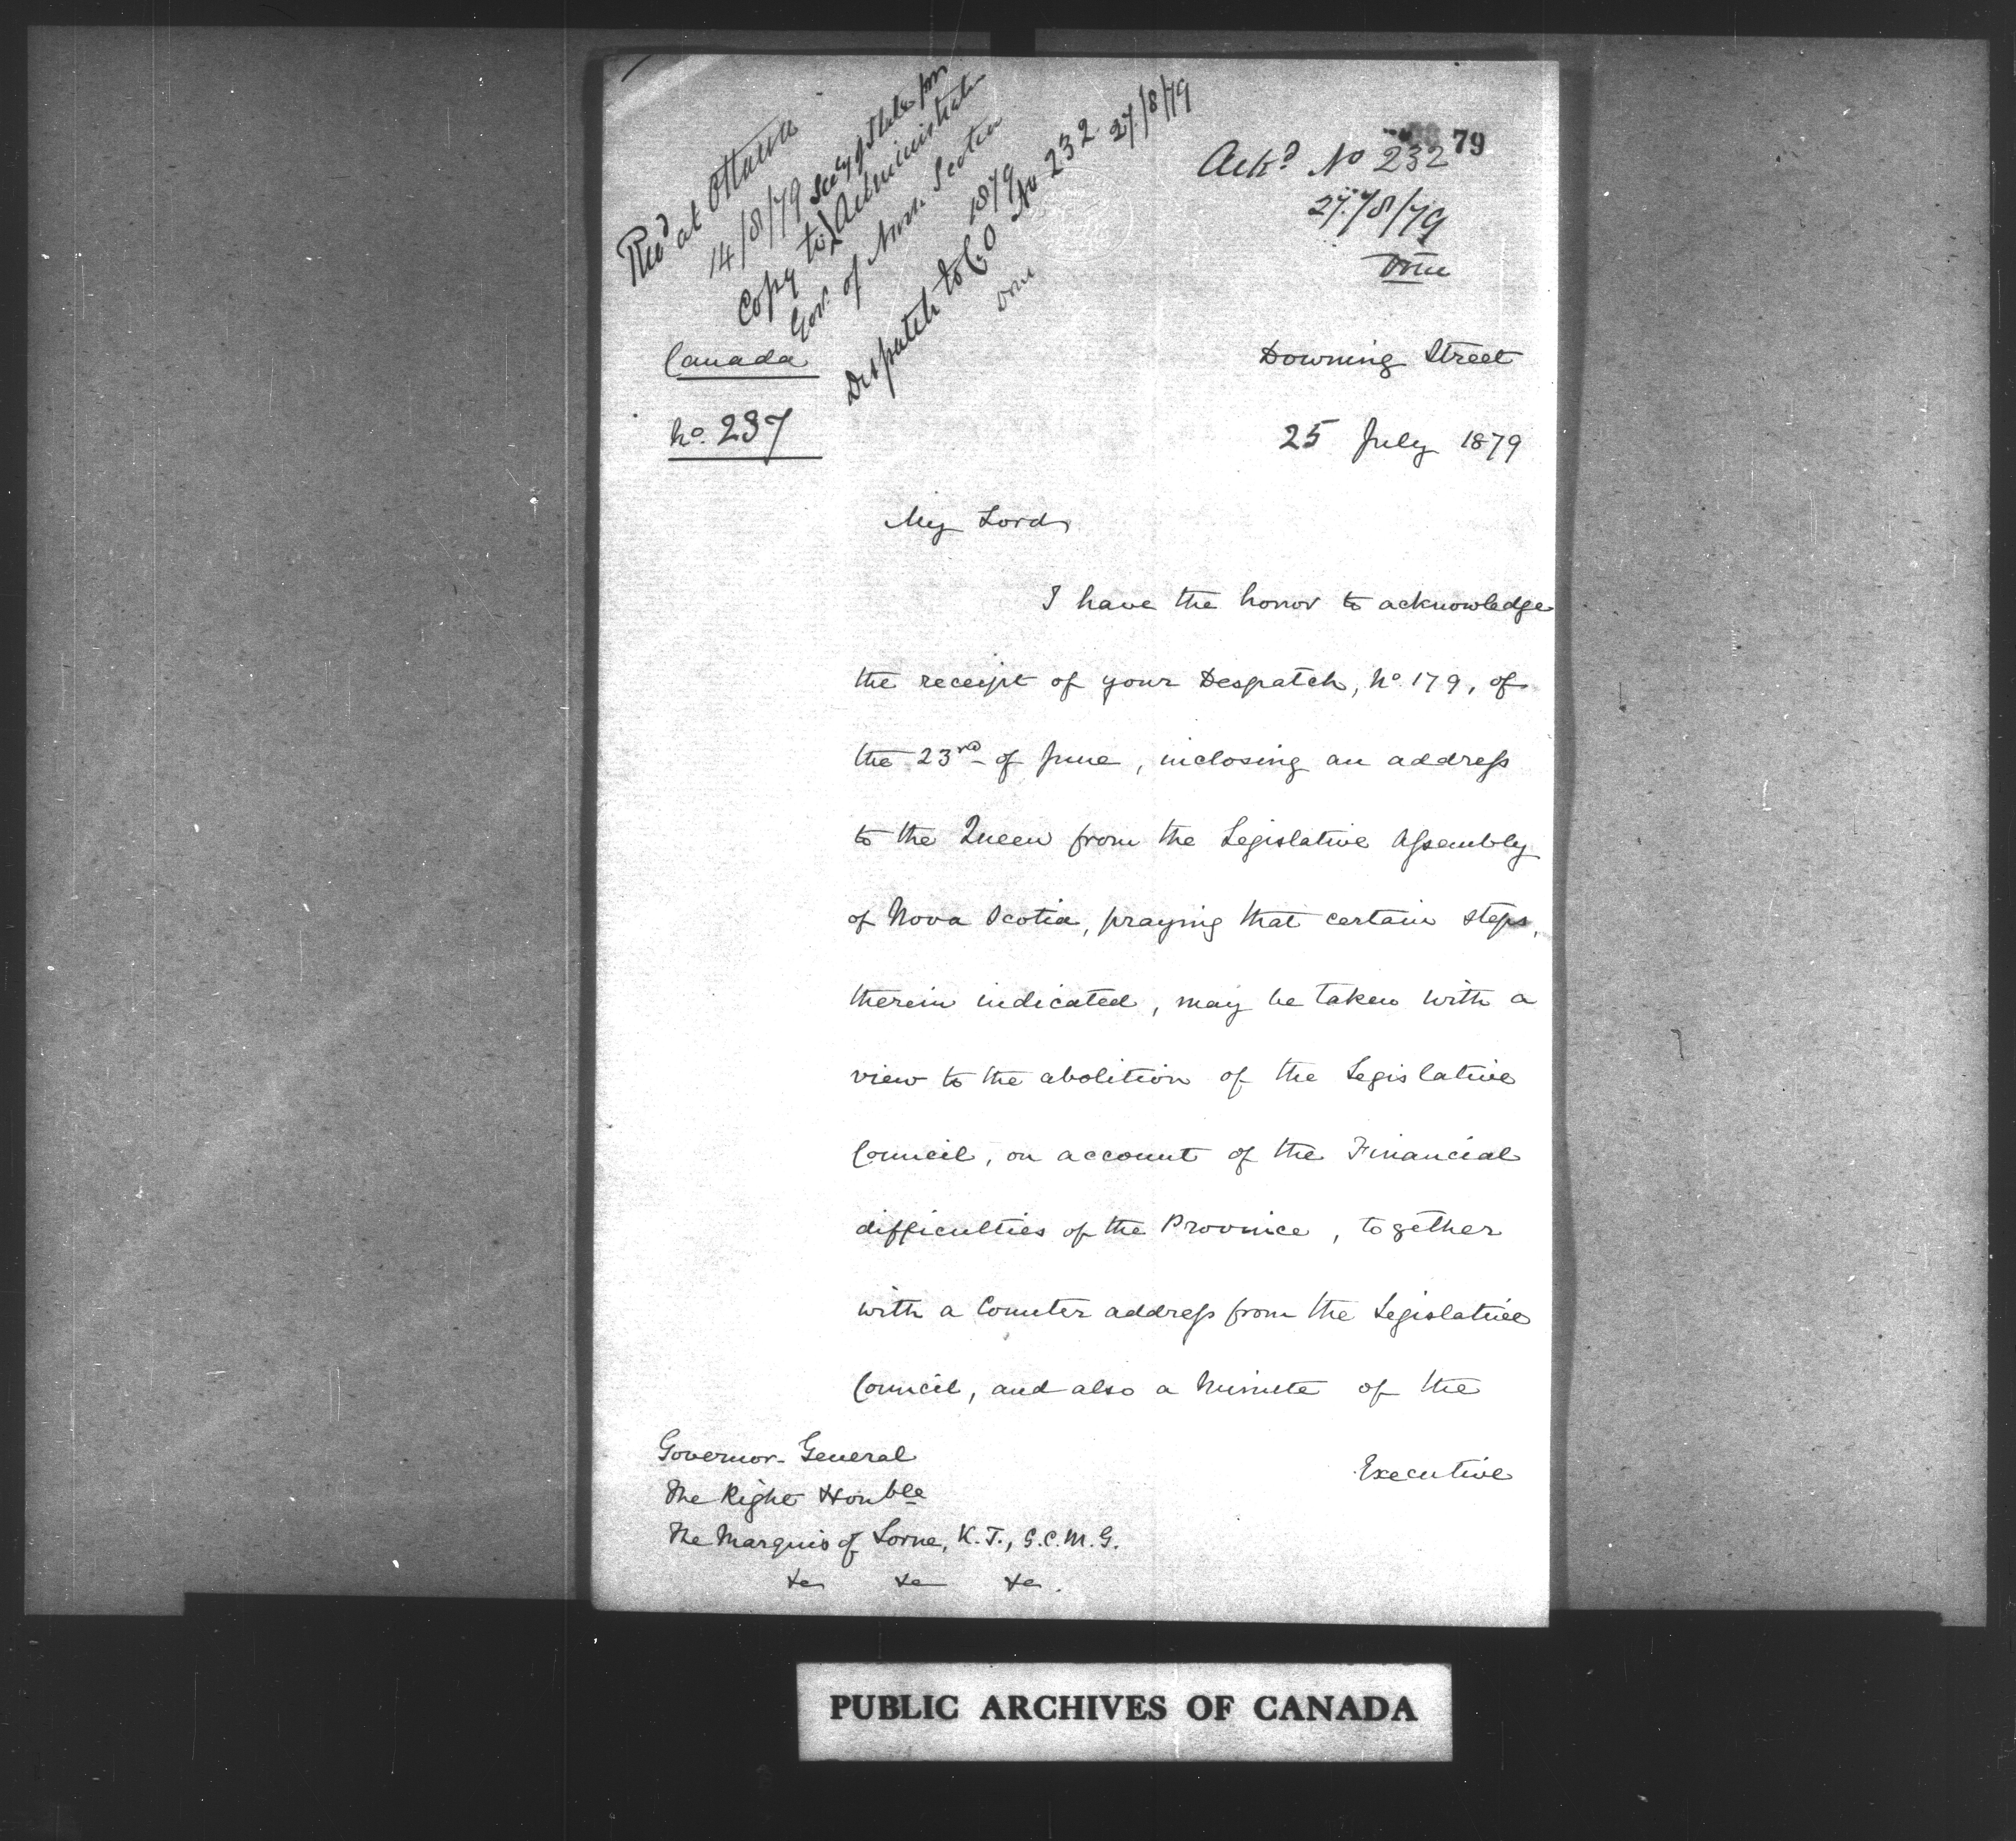 Recd at Ottawa
14/8/79 Secy of State for
Copy to Administrator
Govt. of Nova Scotia
1879
Despatch to C.O No 232. 27/8/79
79
Ackd No 232
27/8/79
Canada
No. 237
Downing Street
25 July 1879
My Lord,
I have the honor to acknowledge
the receipt of your Despatch, No. 179, of
the 23rd of June, inclosing an address
to the Queen from the Legislative Assembly
of Nova Scotia, praying that certain steps,
therein indicated, may be taken with a
view to the abolition of the Legislative
Council, on account of the Financial
difficulties of the Province, together
with a Counter address from the Legislative
Council, and also a Minute of the
Executive
Governor-General
The Right Honble
The Marquis of Lorne, K.T., G.C.M.G.
&c &c &c.
PUBLIC ARCHIVES OF CANADA